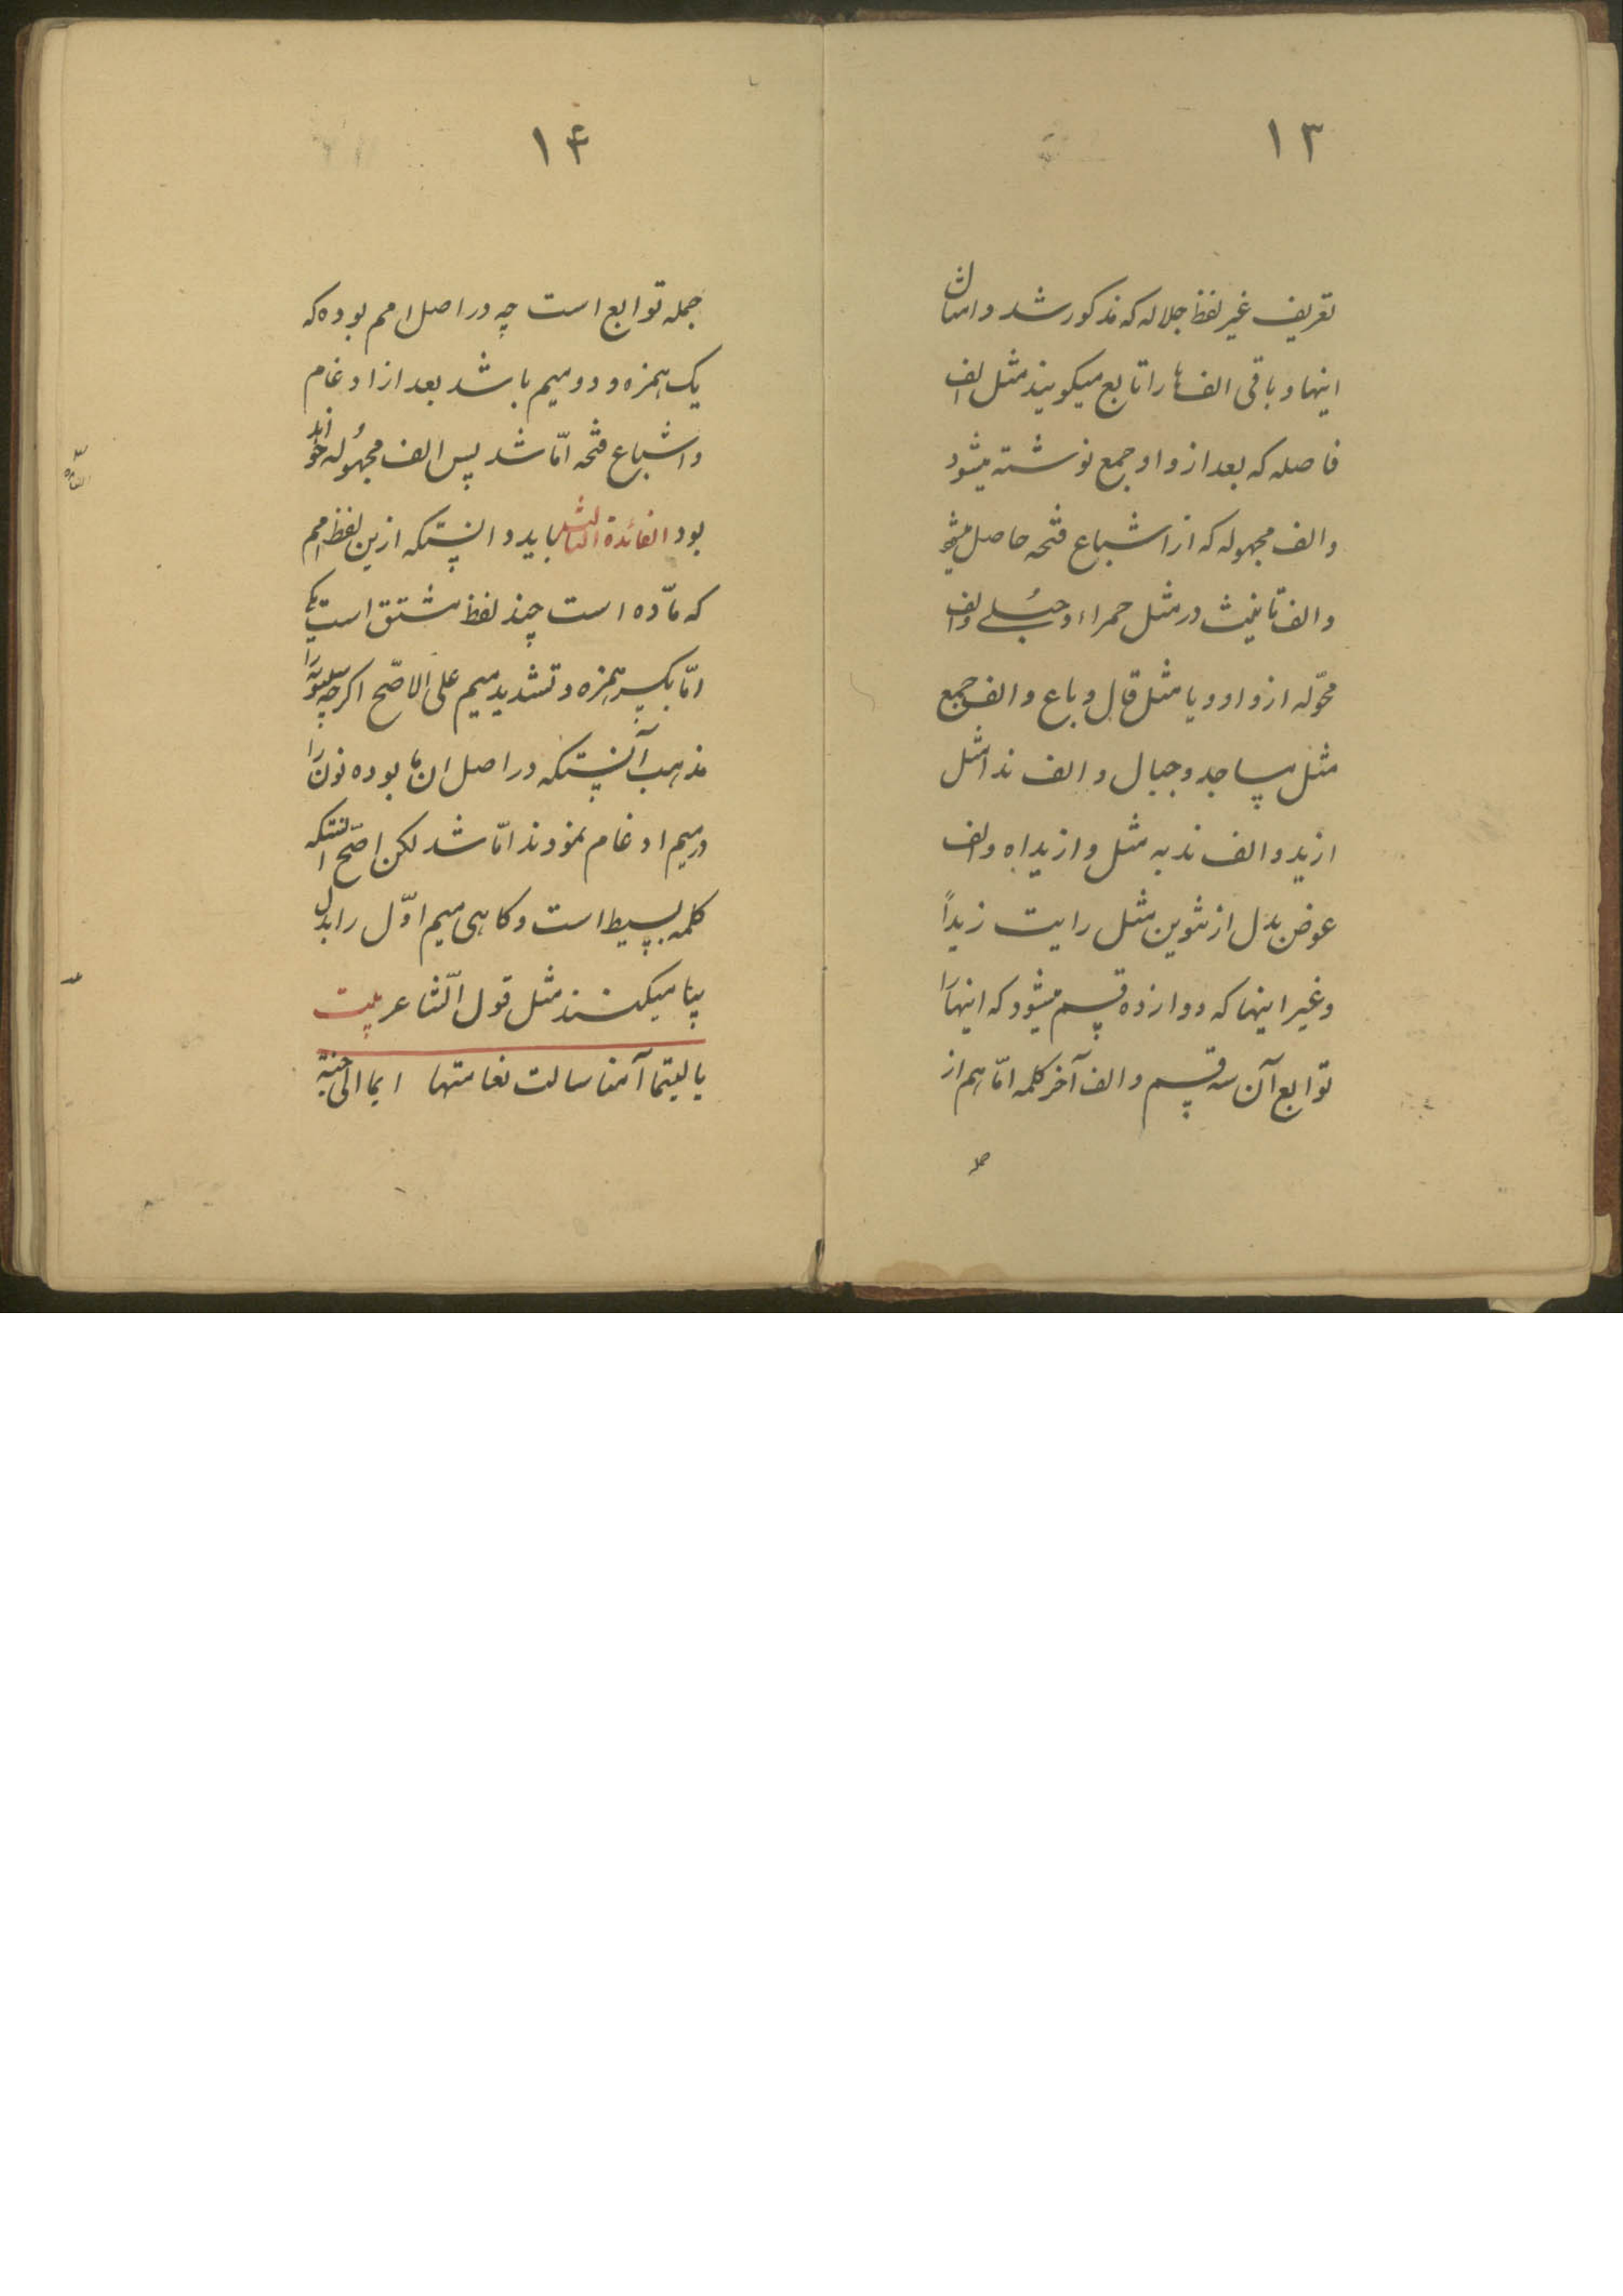 ۱۳
تعریف غیر لفظ جلاله که مذکور شد و امثال
اینها و باقی الف ها را تابع میکویند مثل الف
فاصله که بعد از واو جمع نوشته میشود
والف مجهوله که از اشباع فتحه حاصل میشود
والف تانیث در مثل حمراء و حبلی والف
محوّله از واو و یا مثل قال و باع والف جمع
مثل مساجد و جبال والف ندا مثل
ازید والف ندبه مثل وازیداه والف
عوض بدل از تنوین مثل رایت زیداً
وغیر اینها که دوازده قسم میشود که اینها را
توابع آن سه قسم والف آخر کلمه امّا هم از
۱۴
جمله توابع است چه در اصل امم بوده که
یک همزه و دو میم باشد بعد از ادغام
واشباع فتحه امّا شد پس الف مجهوله خواهد
بود الفائدة الثالثه باید دانستکه ازین لفظ امم
که مادّه است چند لفظ مشتق است یکی
امّا بکسر همزه و تشدید میم علی الاصّح اکرچه سیبویه را
مذهب آنستکه در اصل ان ما بوده نون را
در میم ادغام نمودند امّا شد لکن اصّح آنستکه
کلمه بسیط است و کاهی میم اوّل را بدل
بیا میکنند مثل قول الشّاعر بیت
یا لیتما آمنا سالت نعامتها ایما الی جنة